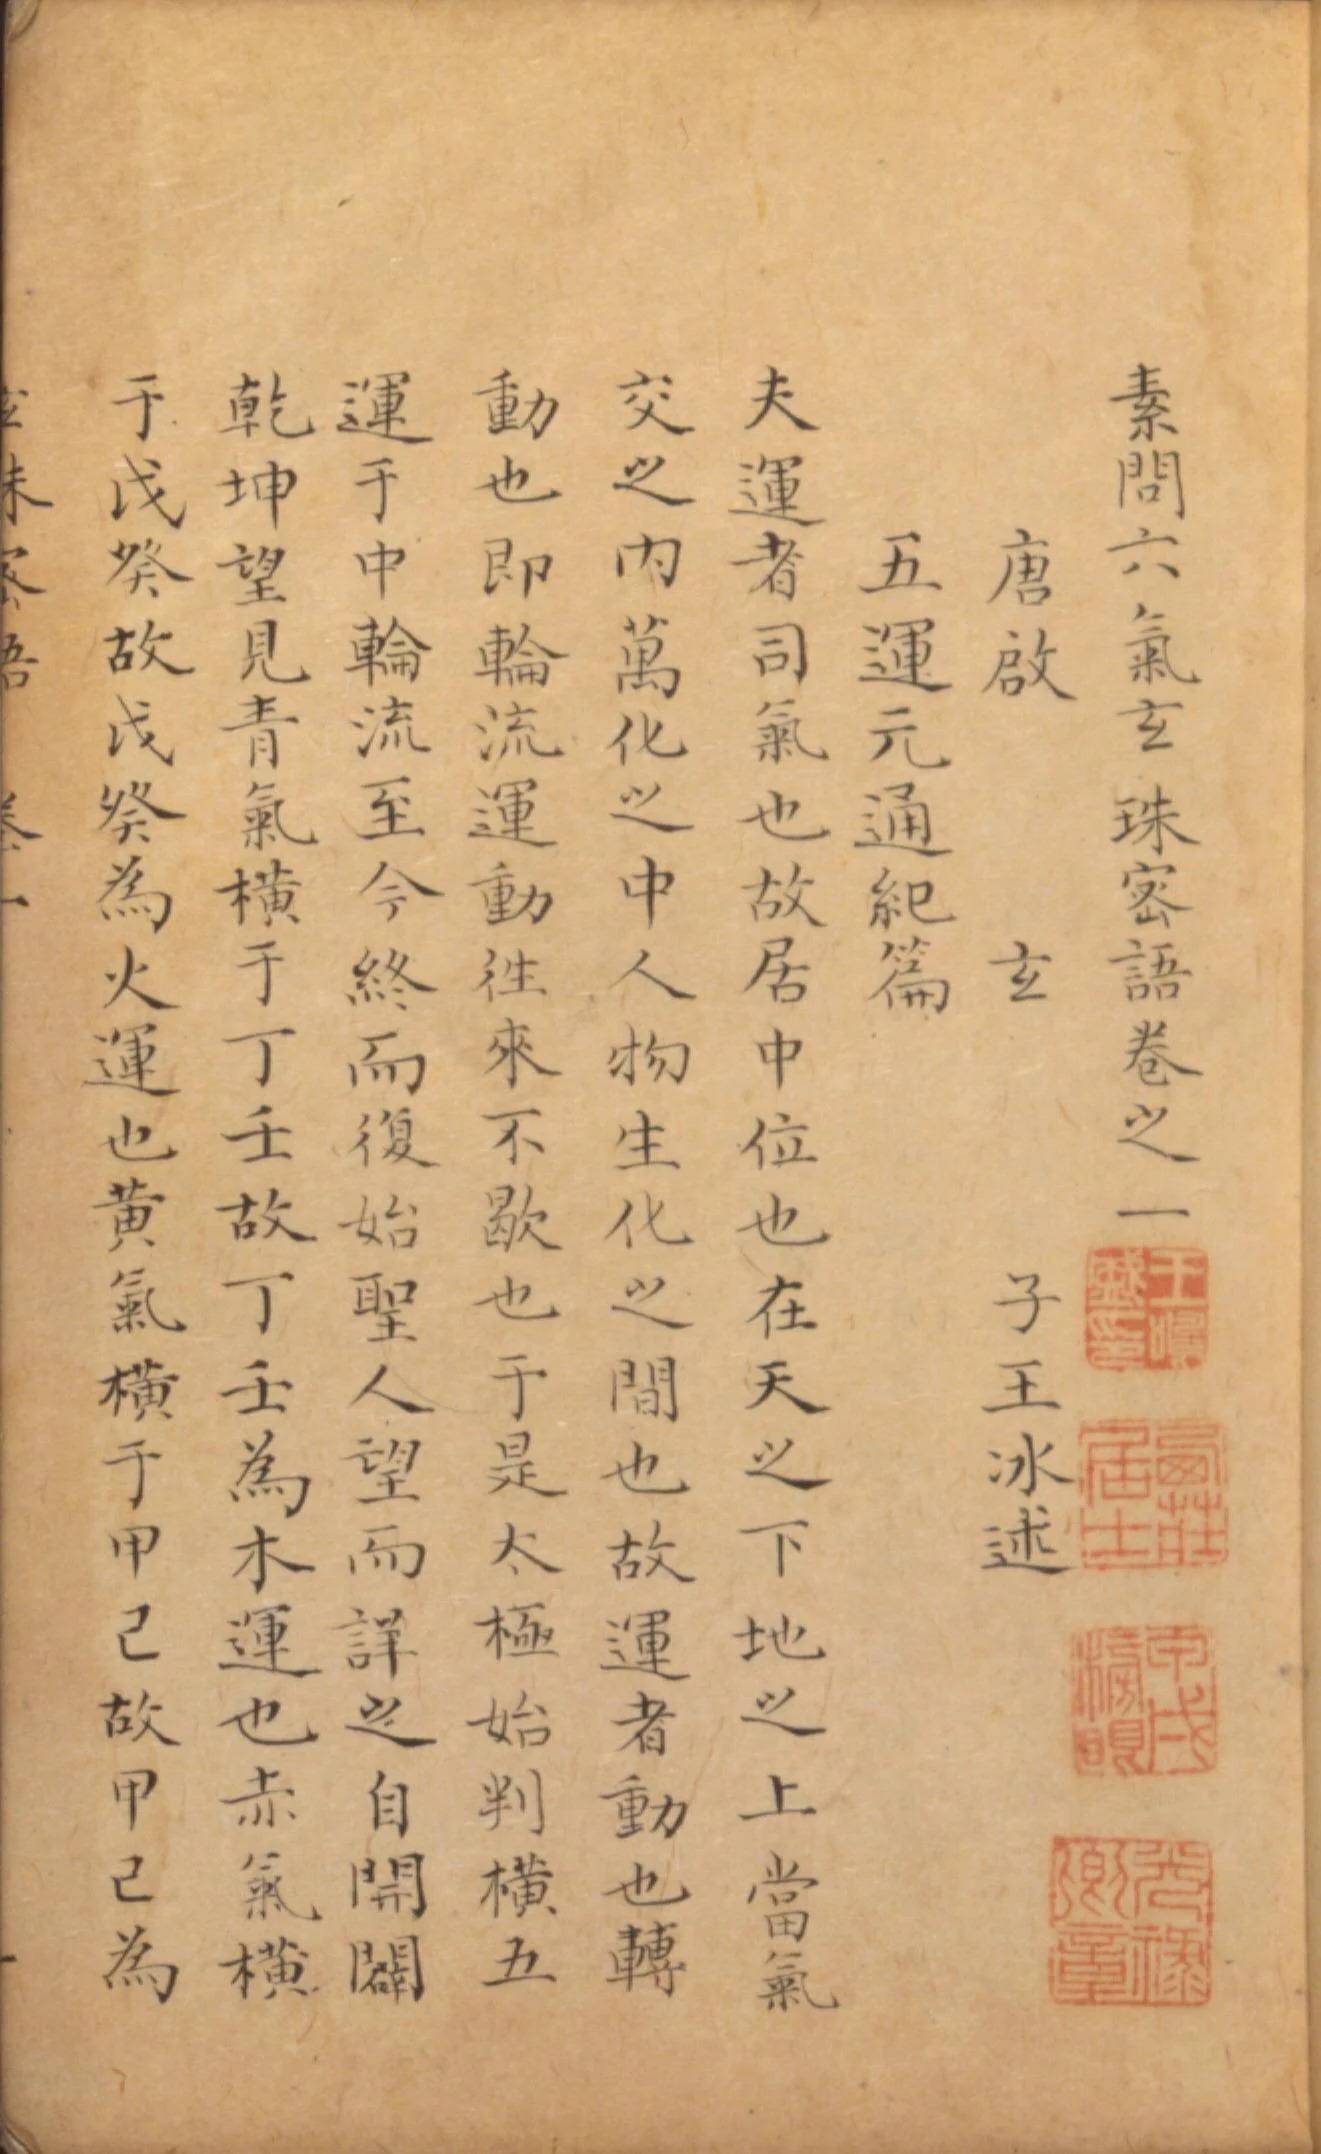 素問六氣玄珠密語卷之一
唐啟玄子王冰述
五運元通紀篇
夫運者司氣也故居中位也在天之下地之上當氣
交之内萬化之中人物生化之間也故運者動也轉
動也即輪流運動徃來不歇也于是太極始判橫五
運于中輪流至今終而復始聖人望而詳之自開闢
乾坤望見青氣橫于丁壬故丁壬為木運也赤氣橫
于戊癸故戊癸為火運也黄氣橫于甲己故甲己為
玄珠密語 卷一 一